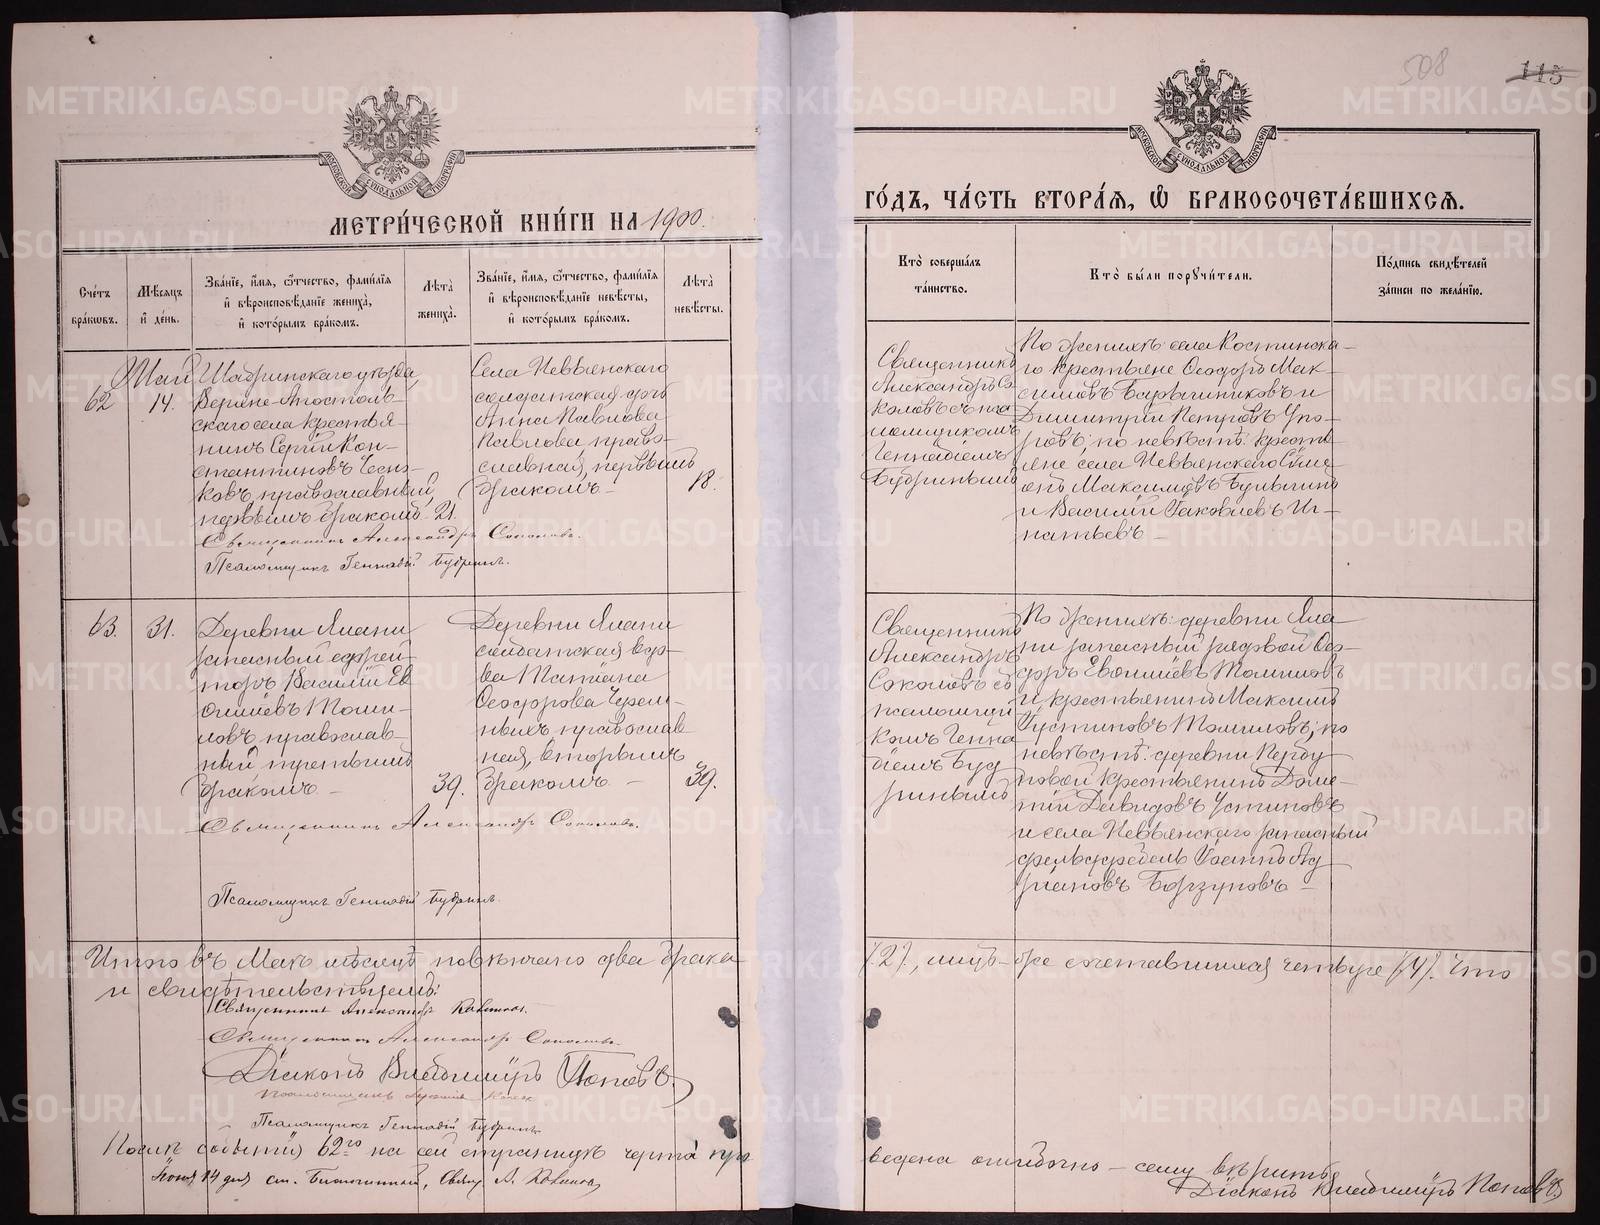 508
115
МОСКОВСКОЙ СУНОДАЛЬНОЙ ТИПОГРАФІИ
МОСКОВСКОЙ СУНОДАЛЬНОЙ ТИПОГРАФІИ
МЕТРИ́ЧЕСКОЙ КНИ́ГИ НА 1900.
ГО́ДЪ, ЧА́СТЬ ВТОРА́Я, Ѽ БРАКОСОЧЕТА́ВШИХСЯ.
Сче́тъ
бра́кѡвъ.
Мѣ́сяцъ
и҆ де́нь.
Зва́нїе, и҆́мя, ѻ҆́тчество, фами́лїя
и҆ вѣроисповѣ́данїе жениха̀,
и҆ кото́рымъ бра́комъ.
Лѣта̀
жениха̀.
Зва́нїе, и҆́мя, ѻ҆́тчество, фами́лїя
и҆ вѣроисповѣ́данїе невѣ́сты,
и҆ кото́рымъ бра́комъ.
Лѣта̀
невѣ́сты.
Кто̀ соверша́лъ
та́инство.
Кто̀ бы́ли поручи́тели.
По́дпись свидѣ́телей
за́писи по жела́нїю.
62
Май
14.
Шадринскаго уѣзда,
Верхне-Апостоль-
скаго села крестья-
нинъ Сергій Кон-
стантиновъ Чесно-
ковъ, православный,
первымъ бракомъ
21.
Села Невьянскаго
солдатская дочь
Анна Павлова
Павлова, право-
славная, первымъ
бракомъ –
18.
Священникъ
Александръ Со
коловъ съ пса
ломщикомъ
Геннадіемъ
Будринымъ
По женихѣ: села Костинска-
го крестьяне Ѳеодоръ Мак-
симовъ и
Димитрій Петровъ Упо-
ровъ; по невѣстѣ: кресть-
яне села Невьянскаго Симе-
онъ Максимовъ Булыгинъ
и Василій Іаковлевъ Иг-
натьевъ –
Священникъ Александръ Соколовъ.
Псаломщикъ Геннадій Будринъ.
63.
31.
Деревни Ялани
запасный ефрей-
торъ Василій Ев
ѳиміевъ Томи-
ловъ, православ-
ный третьимъ
бракомъ –
39.
Деревни Ялани
солдатская вдо-
ва Татіана
Ѳеодорова Черем-
ныхъ, православ
ная, вторымъ
бракомъ –
39.
Священникъ
Александръ
Соколовъ съ
псаломщи
комъ Генна
діемъ Буд
ринымъ
По женихѣ: деревни Яла-
ни запасный рядовой Ѳео-
доръ Евѳиміевъ Томиловъ
и крестьянинъ Максимъ
Іустиновъ Томиловъ; по
невѣстѣ: деревни
крестьянинъ Доме-
тій Давидовъ Устиновъ
и села Невьянскаго запасный
фельдфебель Іоаннъ Ад
ріановъ Борзуновъ –
Священникъ Александръ Соколовъ.
Псаломщикъ Геннадій Будринъ.
Итого въ Маѣ мѣсяцѣ повѣнчано два брака
(2), лицъ-же сочетавшихся четыре (4). Что
и свидѣтельствуемъ:
Священникъ Александръ
Священникъ Александръ Соколовъ.
Діаконъ Владиміръ Поповъ.
Псаломщикъ
Псаломщикъ Геннадій Будринъ.
Послѣ событія 62-го на сей страницѣ черта про
ведена ошибочно – сему вѣрить
Іюня 14 дня Благочинный, Свящ. А.
Діаконъ Владиміръ Поповъ
METRIKI.GASO-URAL.RU